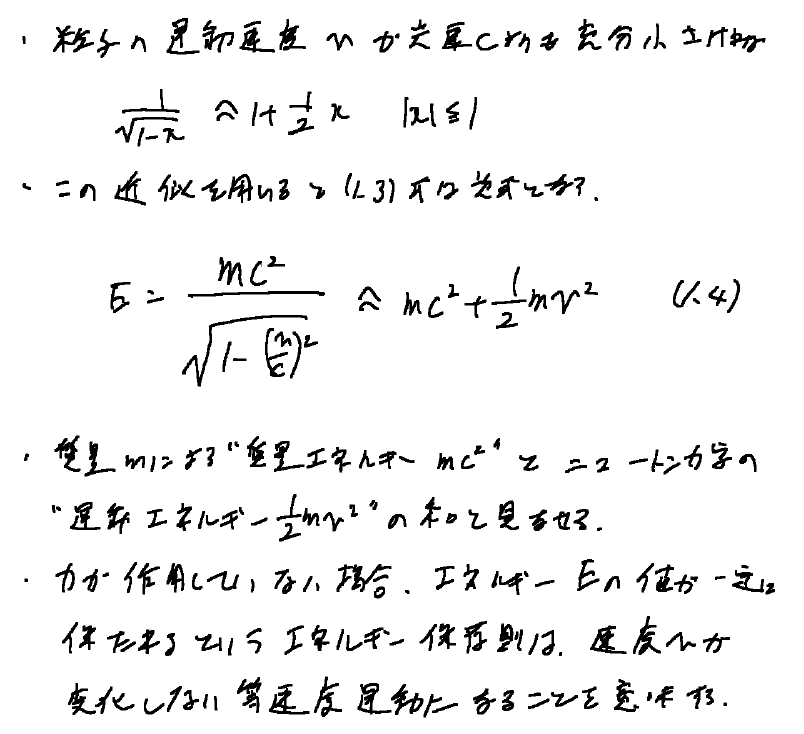 ・ 粒子の運動速度 v が光速cよりも充分小さければ
1/√(1-x) ≈ 1+ 1/2 x  |x| ≦ 1
・ この近似を用いると (1.3) 式は次式となる.
E = mc²/√(1-(v/c)²) ≈ mc² + 1/2 mv²  (1.4)
・ 質量 m による “質量エネルギー mc²” と ニュートン力学の
“運動エネルギー 1/2 mv²” の和と見なせる.
・ 力が作用していない場合. エネルギー E の値が一定に
保たれるというエネルギー保存則は. 速度 v が
変化しない等速度運動になることを意味する.